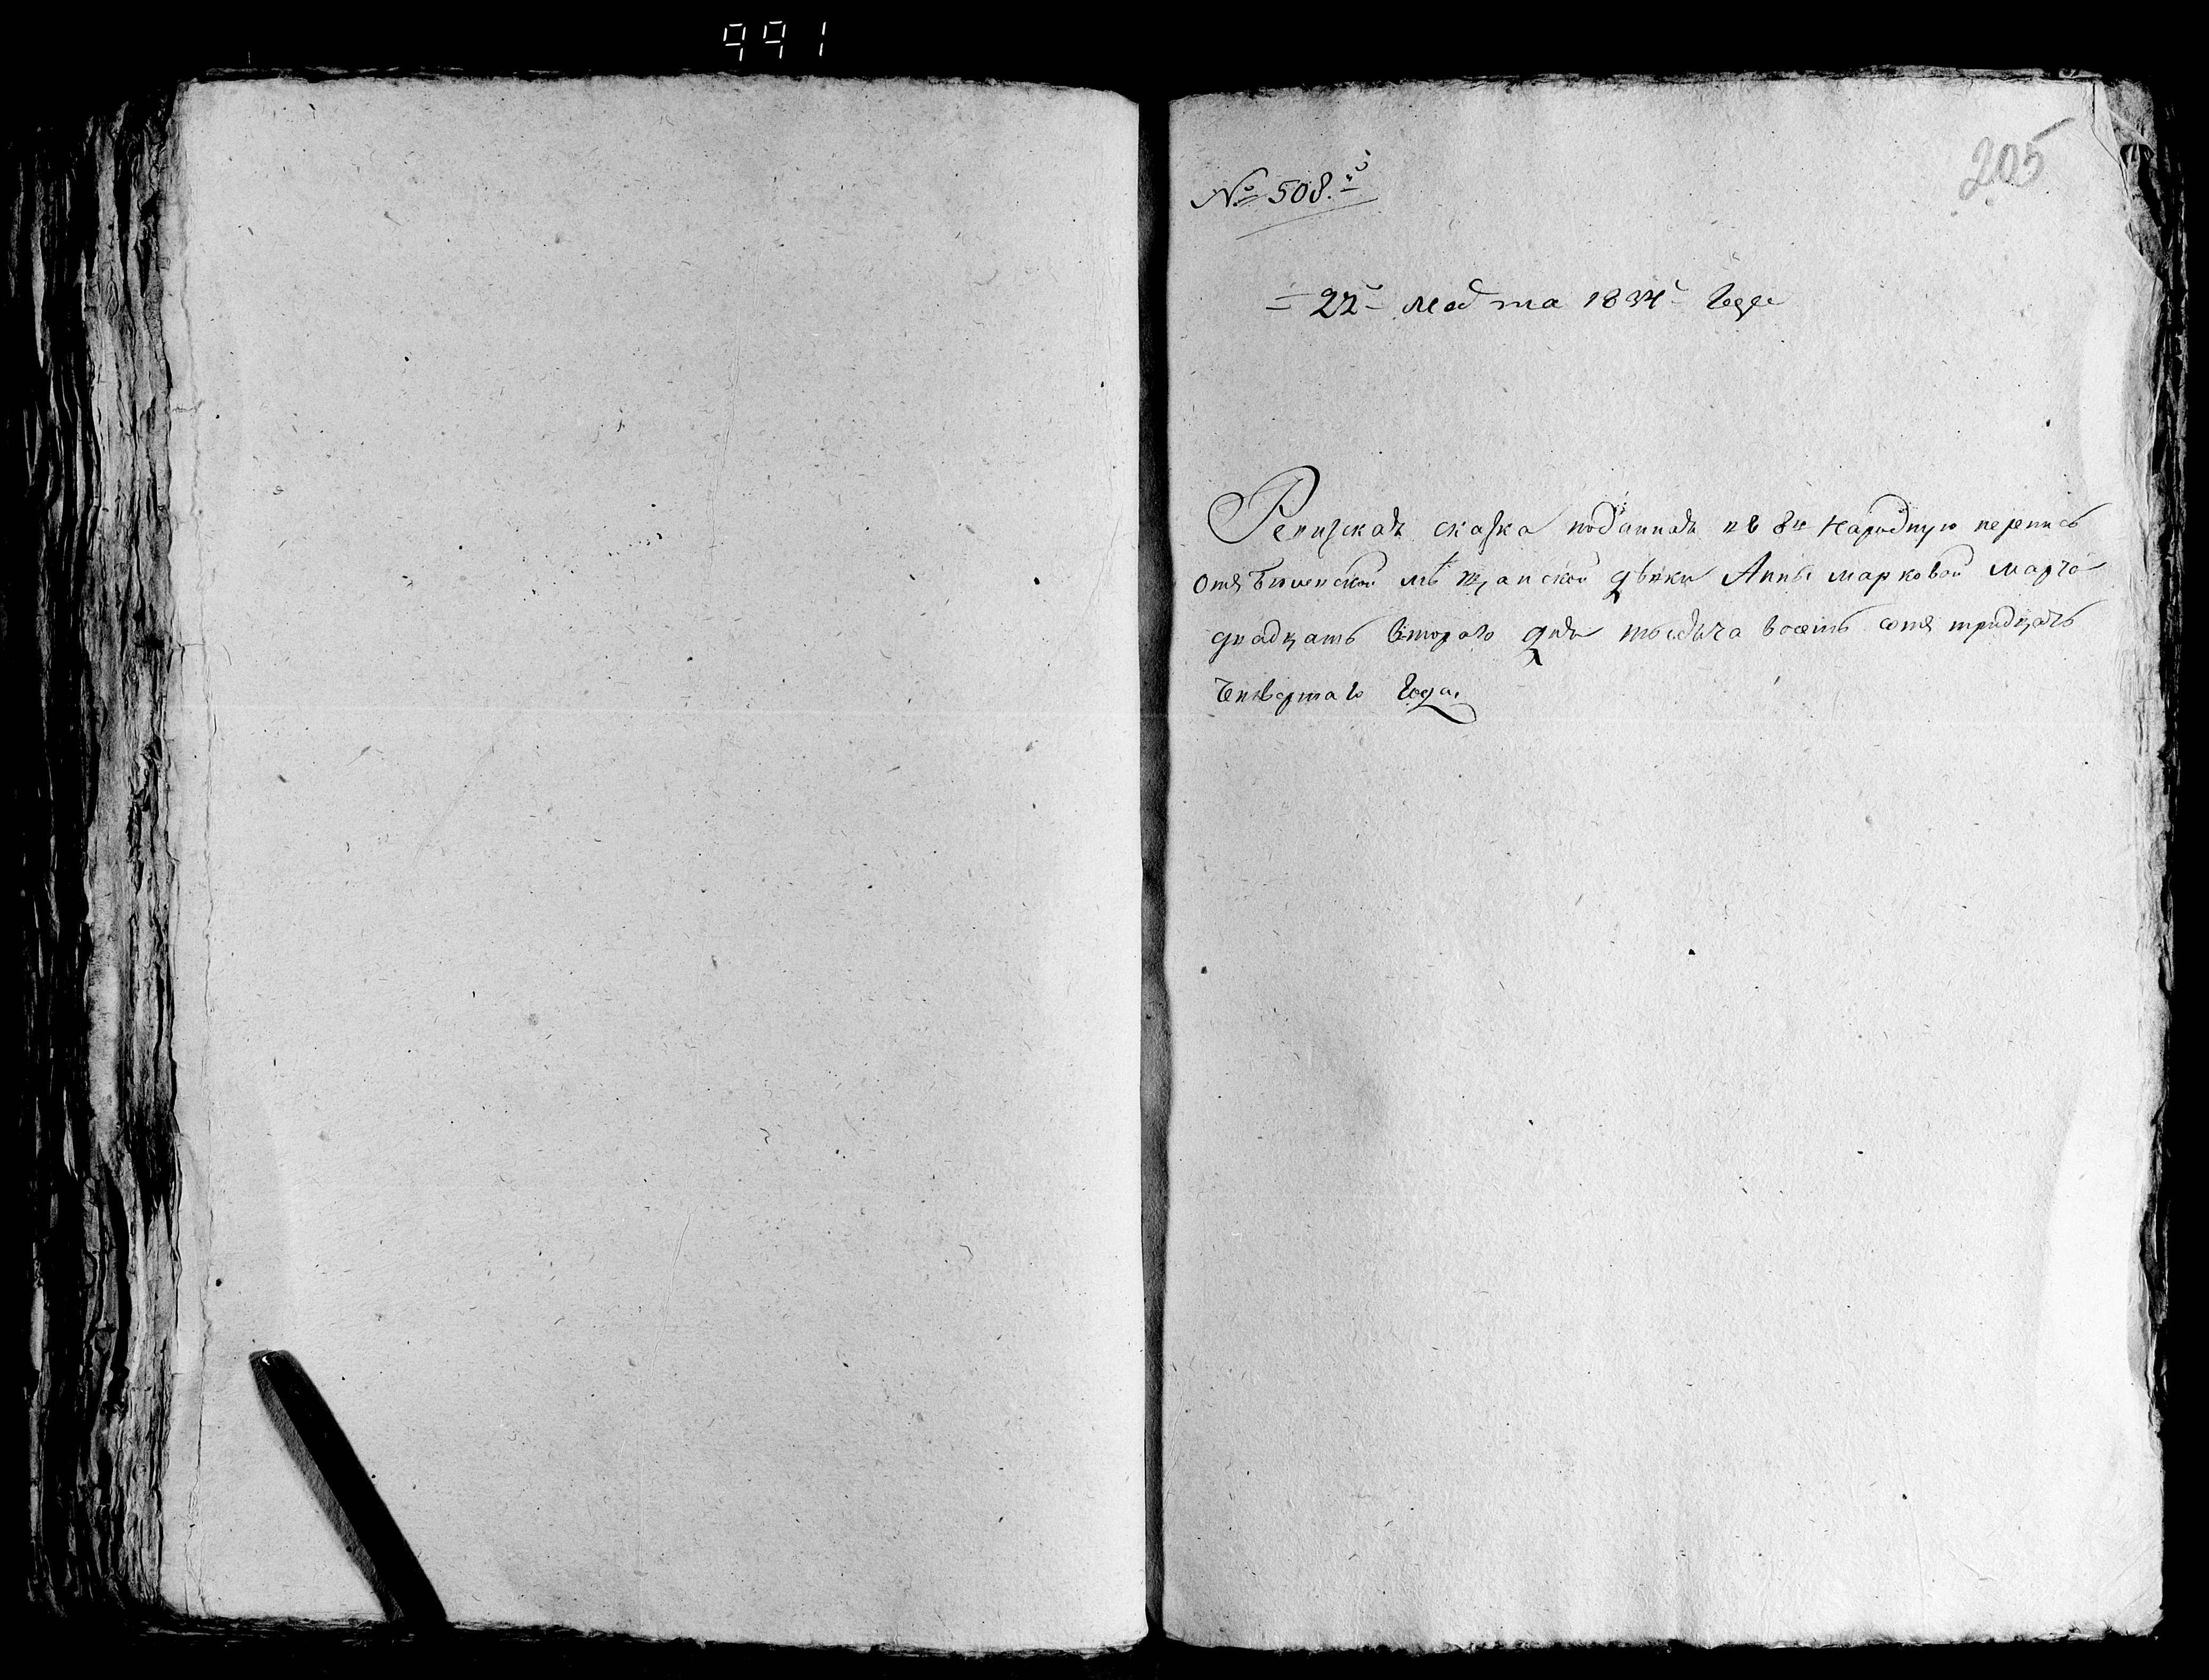 991
205
№ 508.й
22 марта 1834 года
Ревизская сказка поданная въ 8ю народную перепись
отъ мѣщанской дѣвки Анны Марковой марта
двадцать втораго дня тысяча восемь сотъ тридцать
четвертаго года.